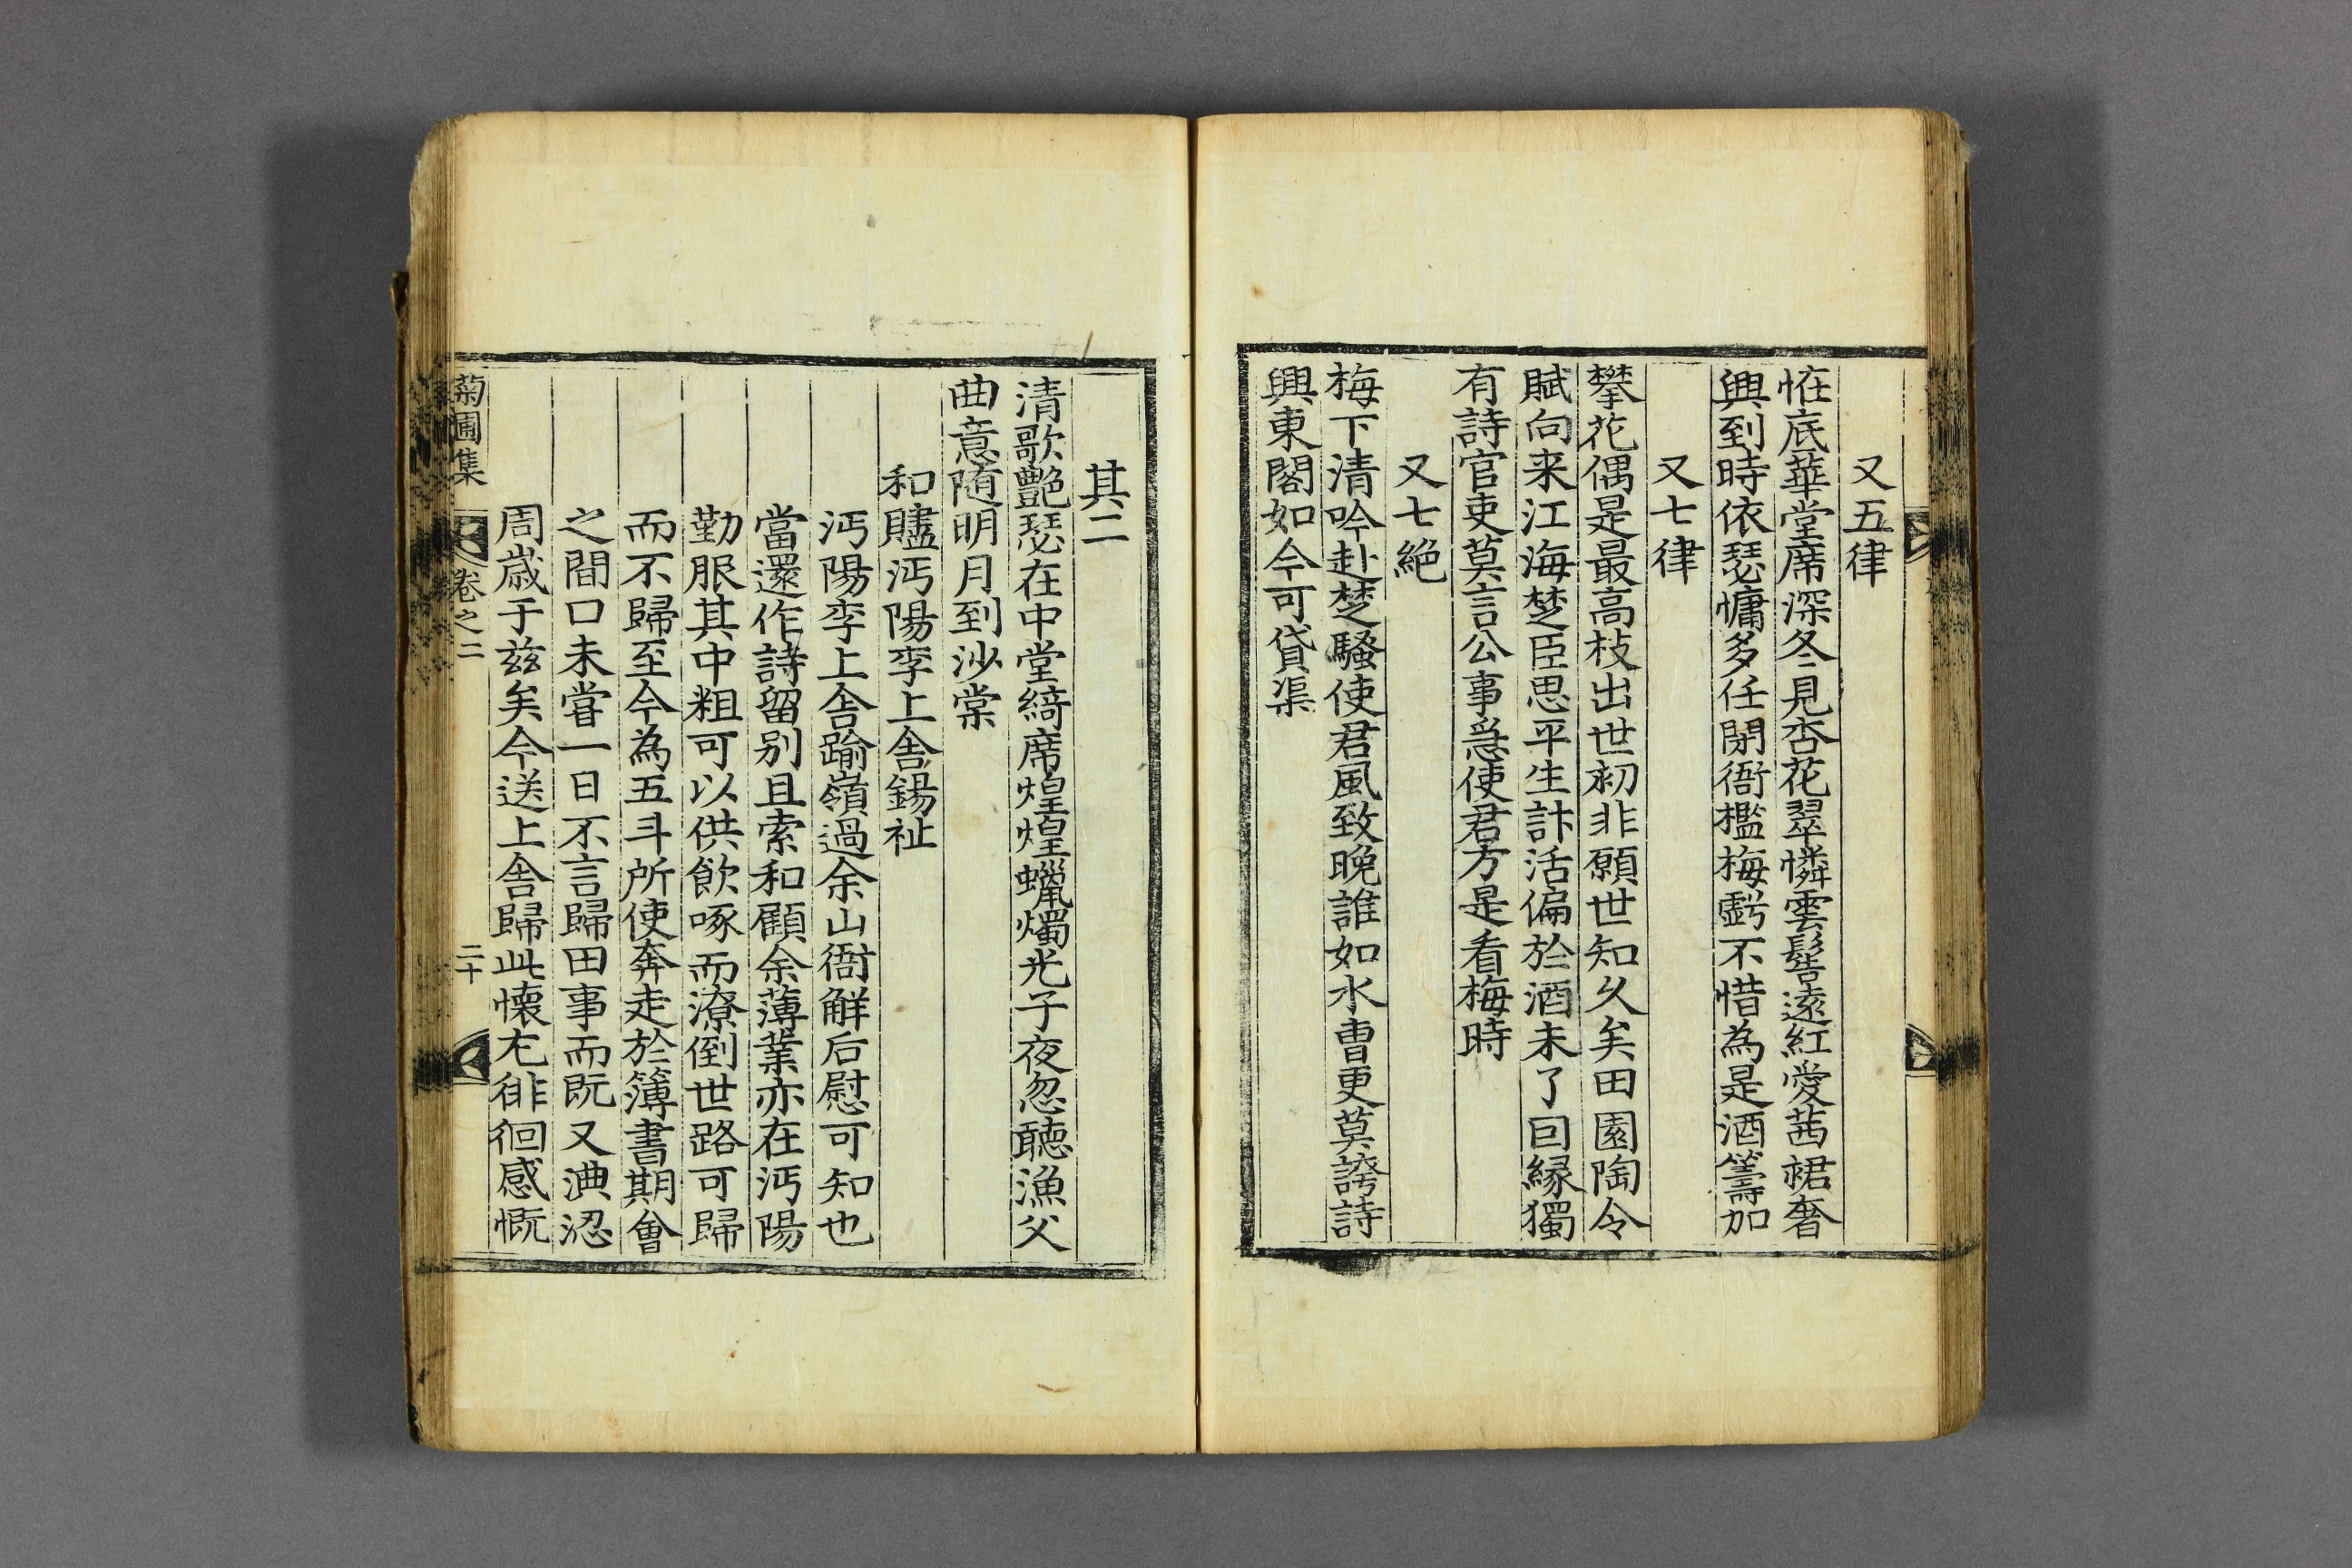 又五律
恠底華堂席深冬見杏花翠憐雲髻遠紅愛茜裙奢
興到時依瑟慵多任閉衙檻梅虧不惜為是酒籌加
又七律
攀花偶是最高枝出世初非願世知久矣田園陶令
賦向来江海楚臣思平生計活偏於酒未了囙緣獨
有詩官吏莫言公事急使君方是看梅時
又七絕
梅下清吟赴楚騷使君風致晚誰如水曺更莫誇詩
興東閣如今可貸渠
其二
清歌艶瑟在中堂綺席煌煌蠟燭光子夜忽聽漁父
曲意随明月到沙棠
和贐沔陽李上舎錫祉
沔陽李上舎踰嶺過余山衙觧后慰可知也
當還作詩留别且索和顧余薄業亦在沔陽
勤服其中粗可以供飲啄而潦倒世路可歸
而不歸至今為五斗所使奔走於簿書期會
之間口未甞一日不言歸田事而旣又淟涊
周歲于兹矣今送上舎歸此懷尢徘徊感慨
菊圃集
卷之二
二十